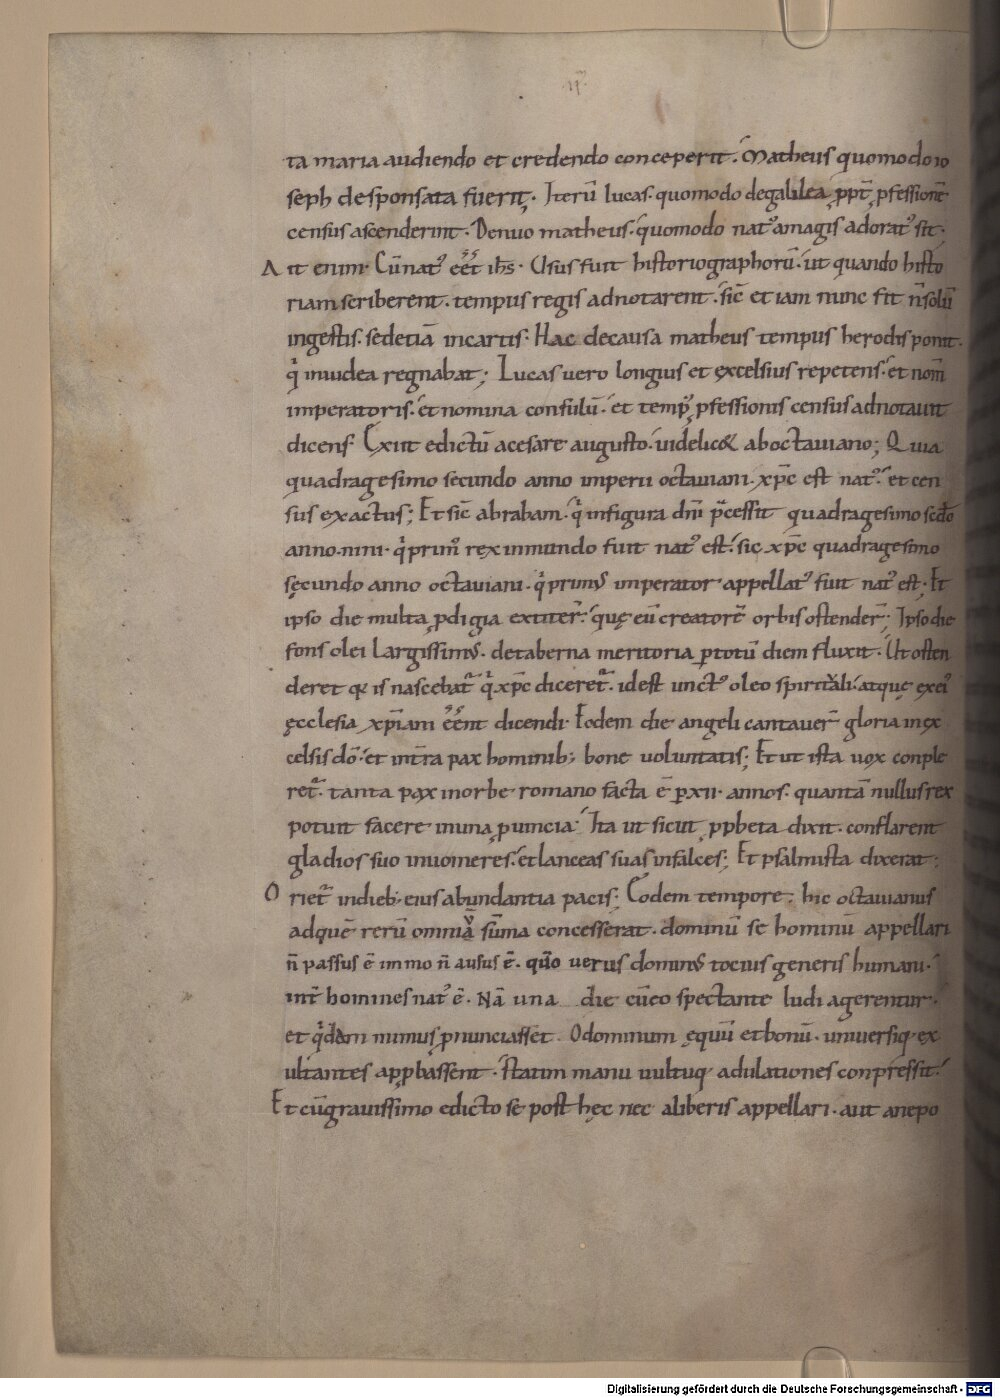 ta maria audiendo et credendo conceperit. Matheus quomodo io
seph desponsata fuerit. Iterū lucas. quomodo degalilea ꝓpt̄ ꝓfessionē
census ascenderint. Denuo matheus. quomodo natꝰ amagis adoratꝰ sit.
Ait enim. Cū natꝰ eēt ih̄s. Usus fuit historiographorū. ut quando histo
riam scriberent. tempus regis adnotarent. sic̄ etiam nunc fit n̄ solū
ingestis. sed etiā incartis. Hac decausa matheus tempus herodis ponit.
q̇ iniudea regnabat; Lucas uero longius et excelsius repetens. et nom̄
imperatoris. et nomina consulū. et temp̄ ꝓfessionis census adnotauit
dicens. Exiit edictū acesare augusto. uidelic& aboctauiano; Quia
quadragesimo secundo anno imperii octauiani. xp̄c est natꝰ. et cen
sus exactus; Et sic̄ abraham. q̇ infigura dn̄i p̄cessit quadragesimo scd̄o
anno nini. q̇ primꝰ rex inmundo fuit natꝰ est. sic xp̄c quadragesimo
sęcundo anno octauiani. q̇ primꝰ imperator appellatꝰ fuit natꝰ est. Et
ipso die multa ꝓdigia extiter̄. quę eū creatorē orbis ostender̄; Ipso die
fons olei largissimꝰ. detaberna meritoria ꝑtotū diem fluxit. Ut osten
deret qꝛ is nascebat̄ q̇ xp̄c diceret̄. id est unctꝰ oleo spiritali. atque exei
ęcclesia xp̄iani eēnt dicendi. Eodem die angeli cantauer̄ gloria inex
celsis dō. et int̄ra pax hominib; bone uoluntatis; Et ut ista uox conple
ret̄. tanta pax inorbe romano facta ē ꝑxii. annos. quantā nullus rex
potuit facere inuna ꝓuincia. Ita ut sicut ꝓpheta dixit. conflarent
gladios suo inuomeres. et lanceas suas infalces; Et psalmista dixerat;
Oriet̄ indieb; eius abundantia pacis; Eodem tempore. hic octauianus
adquē rerū omniā sūma concesserat. dominū se hominū appellari
n̄ passus ē immo n̄ ausus ē. quō uerus dominꝰ tocius generis humani.
int̄ homines natꝰ ē. Nā una die cū eo spectante ludi agerentur.
et q̇dam mimus ꝓnunciasset. O dominum ęquū et bonū. uniuersiq; ex
ultantes apꝓbassent. statim manu uultuq; adulationes conpressit.
Et cū grauissimo edicto se post hęc nec aliberis appellari. aut anepo
Digitalisierung gefördert durch die Deutsche Forschungsgemeinschaft - DFG